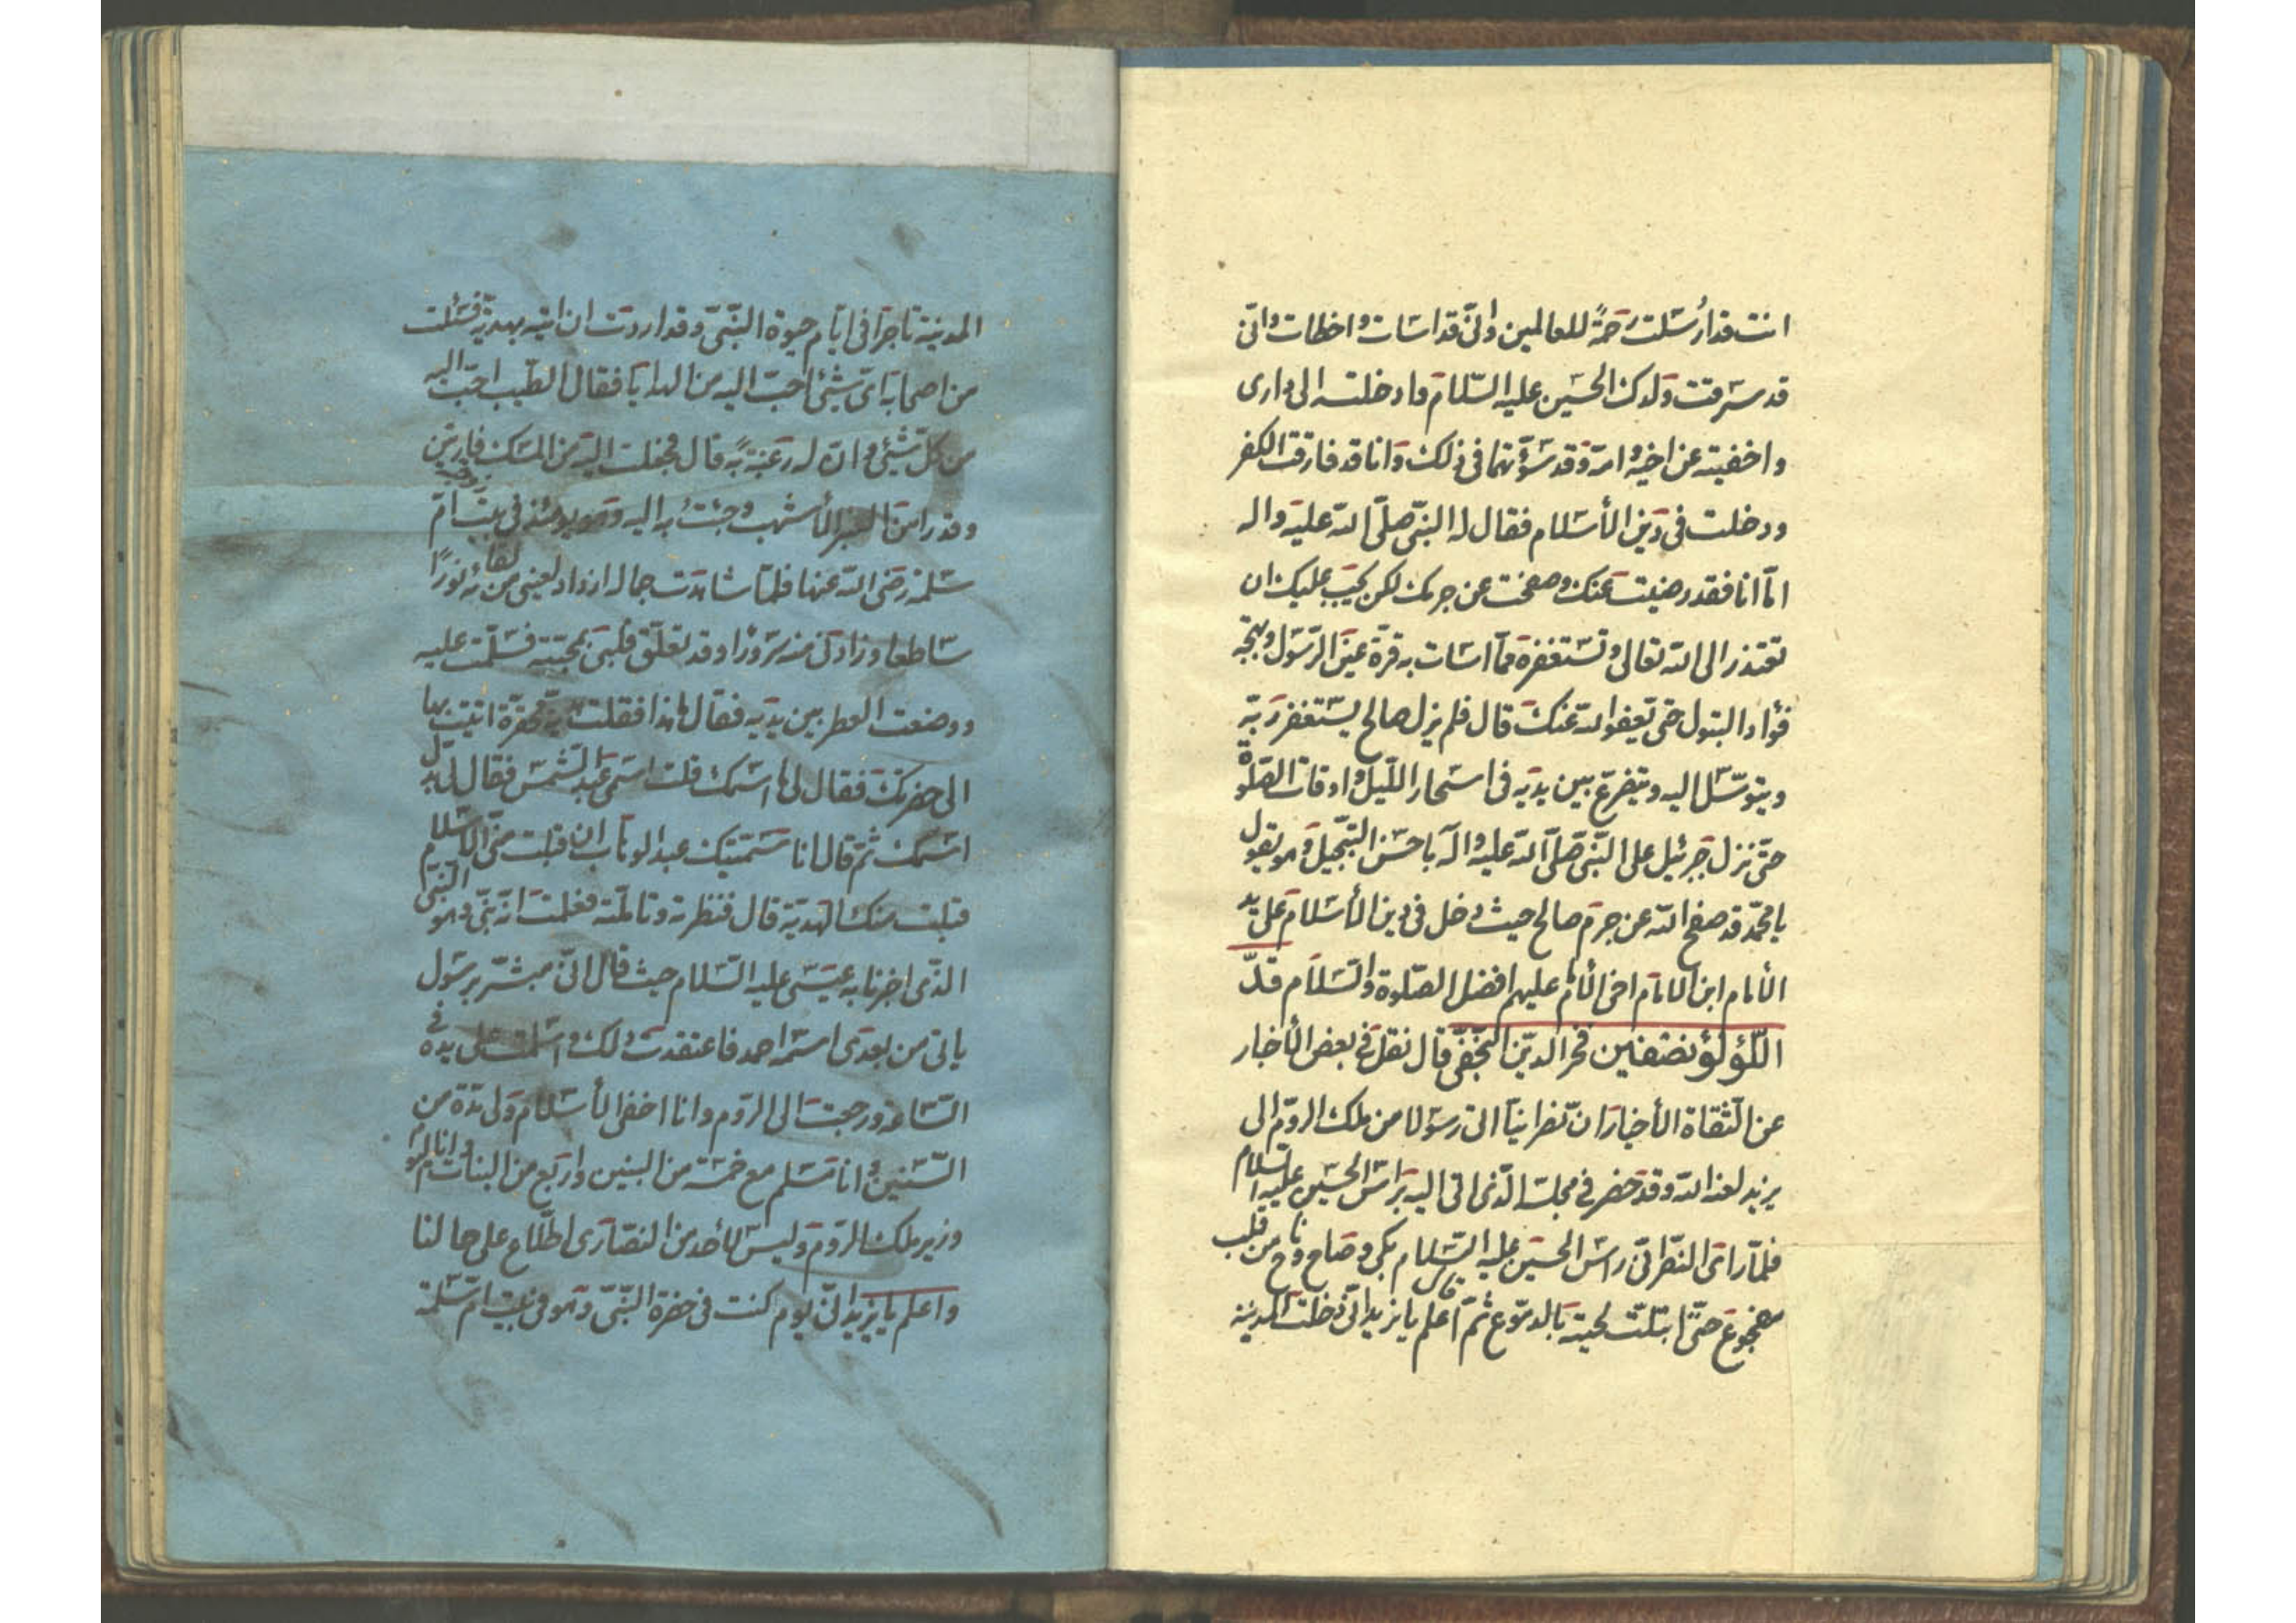 انت قد ارسلت رحمة للعالمین وانّی قد اسات واخطات وانّی
قد سرقت ولدک الحسین علیه السّلام وادخلته الی داری
واخفیته عن اخیه وامّه وقد سؤتهما فی ذلک وانا قد فارقت الکفر
ودخلت فی دین الأسلام فقال له النبّی صلّی الله علیه واله
امّا انا فقد رضیت عنک وصفحت عن جرمک لکن یجب علیک ان
تعتذر الی الله تعالی وتستغفره ممّا اسات به قرّة عین الرّسول وبهجة
فؤاد البتول حتی یعفوا لله عنک قال فلم یزل صالح یستغفر ربّه
ویتوسّل الیه ویتضرع بین یدیه فی اسحار اللّیل واوقات الصّلوة
حتّی نزل جبرئیل علی النّبی صلّی الله علیه واله باحسن التّبجیل وهو یقول
یا محمّد قد صفح الله عن جرم صالح حیث دخل فی دین الأسلام علی ید
الأمام ابن الامام اخی الأمام علیهم افضل الصّلوة والسّلام قد لّ
اللّؤلؤ فخر الدیّن النّجفی قال نقل فی بعض الأخبار
عن الثّقاة الأخیار انّ نصرانیّا اتی رسولا من ملک الروّم الی
یزید لعنه الله وقد حضر فی مجلسه الّذی اتی الیه براس الحسین علیه السّلام
فلمّا رای النّصرانّی راس الحسین علیه السّلام بکی وصاح وناح من قلب
مفجوع حتّی ابتلّت لحیته بالدموّع ثمّ قال اعلم یا یزید انّی دخلت المدینة
المدینة تاجرا فی ایّام حیوة النّبّی وقد اردت ان اتیه بهدیّة فسئلت
من اصحابه ایّ شیئ احبّ الیه من الهدایا فقال الطّیب احبّ الیه
من کلّ شیئ وانّ له رغبة به قال فحملت الیه من المسک فارتین
وقدرا من العنبر الأشهب وجئت به الیه وهو یومئذ فی بیت زوجته امّ
سلمة رضی الله عنها فلمّا شاهدت جماله ازداد لعینی من لقائه نورًا
ساطعا وزادنی منه سرورًا وقد تعلّق قلبی بمحبّته فسلّمت علیه
ووضعت العطر بین یدیه فقال ما هذا فقلت هدیّة محقّرة اتیت بها
الی حضرتک فقال لی ما اسمک قلت اسمی عبد الشّمس فقال لی بدّل
اسمک ثمّ قال انا سمّیتک عبد الوهاب ان قبلت منّی الأسلام
قبلت منک الهدیّة قال فنظرته وتاملّته فعلمت انّه نبّی وهو النبّی
الّذی اخبرنا به عیسی علیه السّلام حیث قال انّی مبشّر برسول
یاتی من بعدی اسمه احمد فاعتقدت ذلک واسلمت علی یده فی
السّاعة ورجعت الی الروّم وانا اخفی الأسلام ولی مدّة من
السّنین وانا مسلم مع خمسة من البنین واربع من البنات وانا الیوم
وزیر ملک الروّم ولیس لأحد من النصّاری اطّلاع علی حالنا
واعلم یا یزید انّی یوم کنت فی حضرة النّبّی وهو فی بیت امّ سلمة